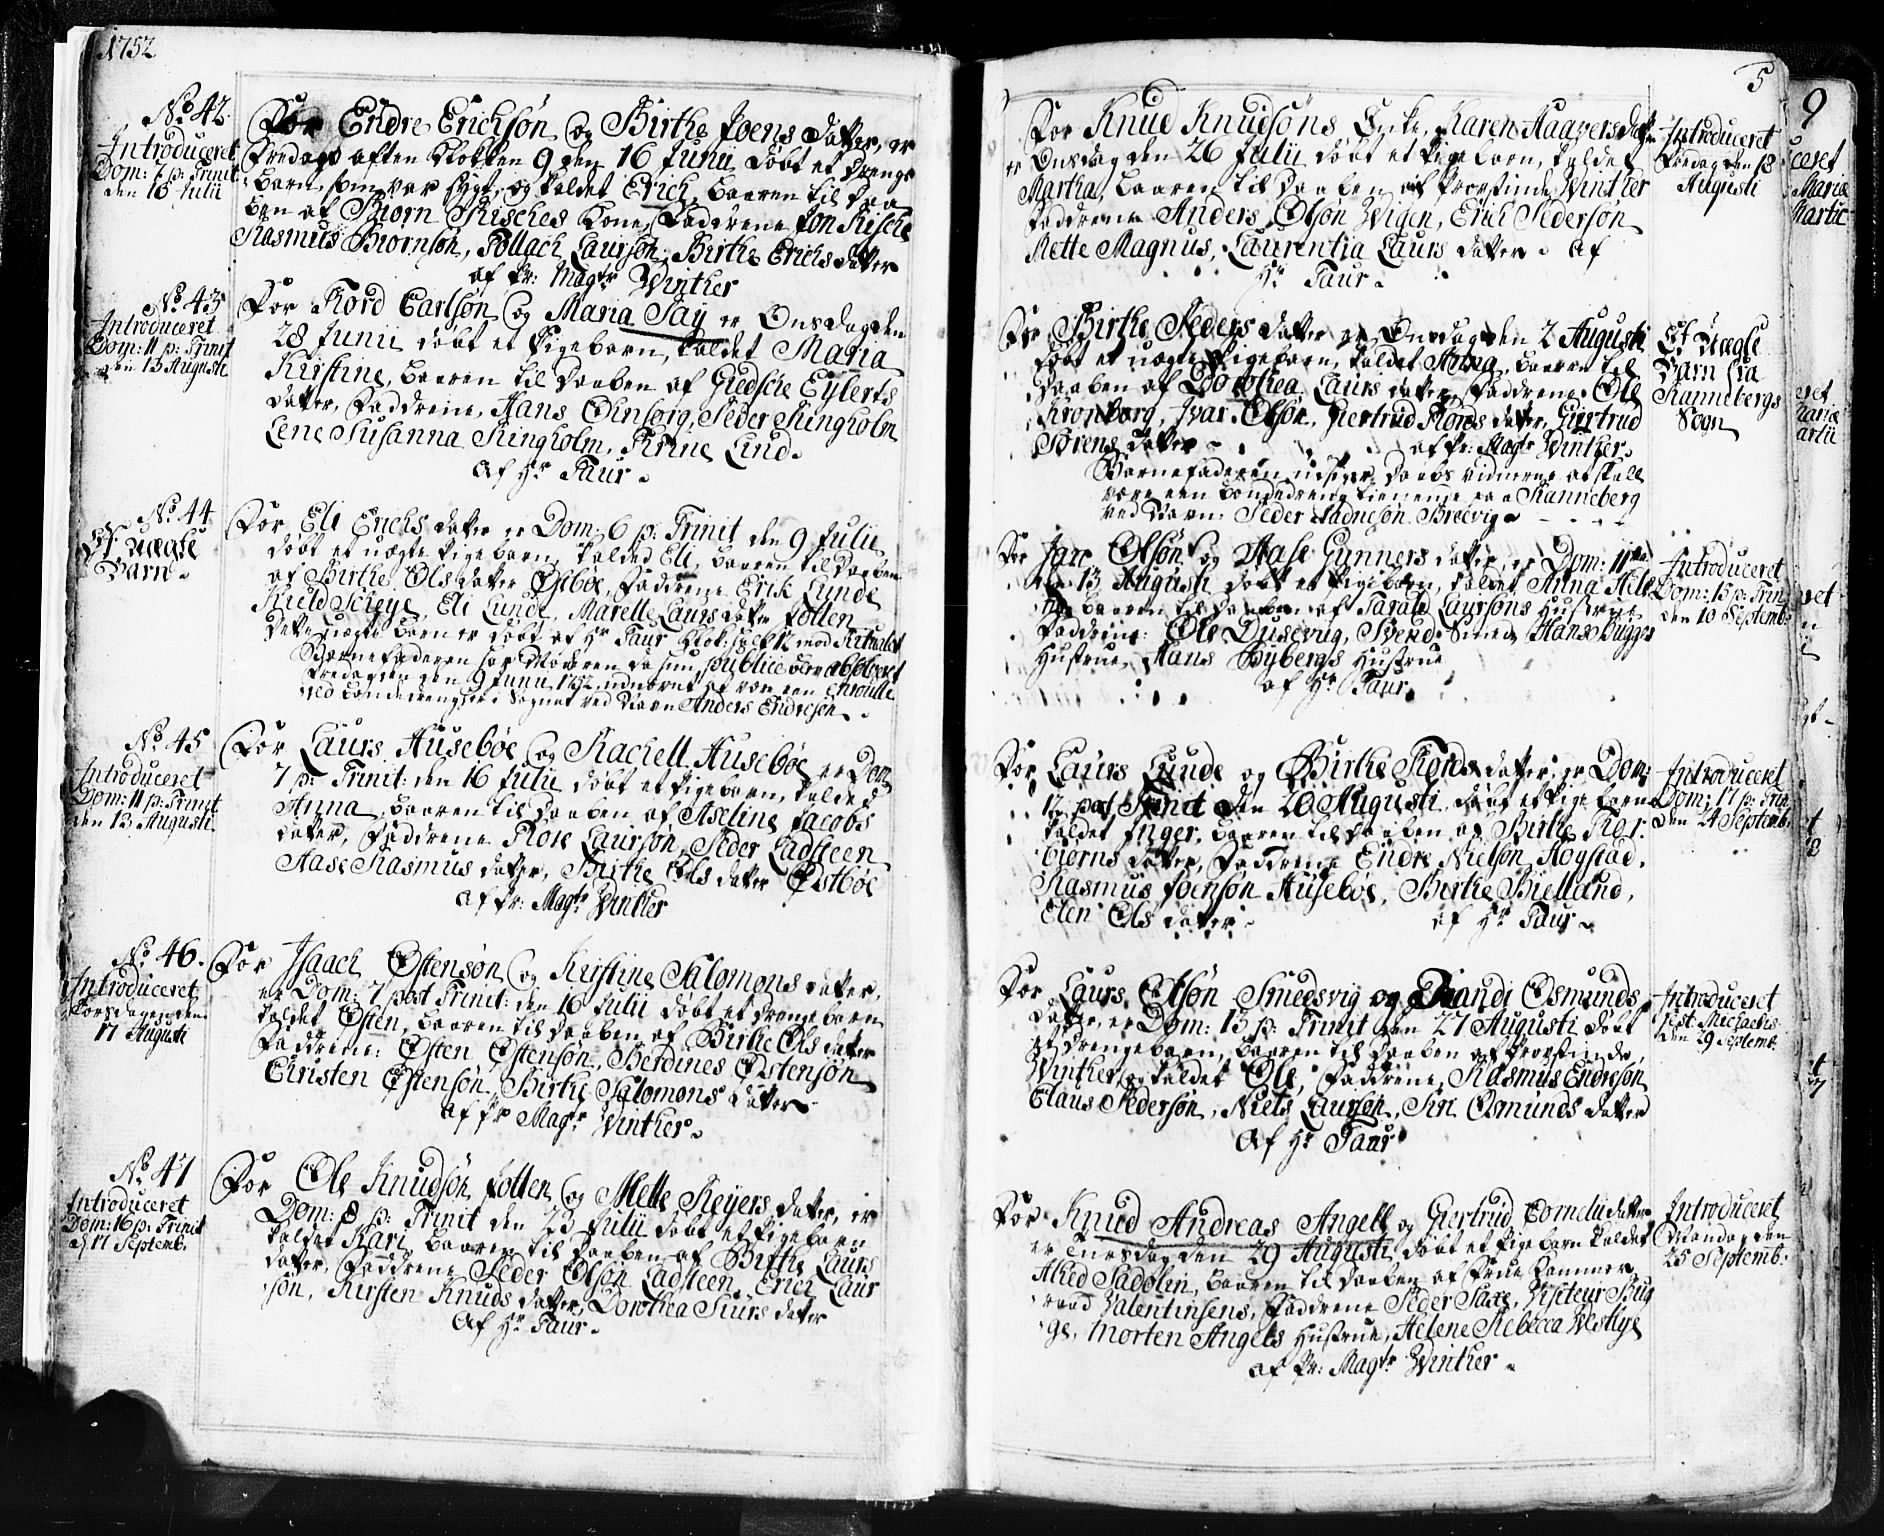 1752
No. 42.
Introduceret
Dom: 7 p: Trinit:
den 16 Julii
For Endre Erichsøn og Birthe Joens datter, er
Fredags aften Klokken 9 den 16 Junii døbt et drenge
barn, som var sygt, og kaldet Erich, baaren til daa
ben af Biørn Kisches Kone, Faddrene Jon Kische
Rasmus Biørnsøn, Tollach Laursøn, Birthe Erichs datter
af Pr: Magr. Winther
No. 43
Introduceret
Dom: 11 p: Trinit
den 13 Augusti
For Tord Carlsøn og Maria Say er Onsdag den
28 Junii døbt et Pigebarn, kaldet Maria
Kirstine, baaren til daaben af Giedsche Eylerts
datter, Faddrene, Hans Ohnsorg, Peder Ringholm
Lene Susanna Ringholm, Trine Lind.
Af Hr. Taur.
No. 44
Et Uægte
Barn.
For Eli Erichs datter er Dom: 6 p: Trinit den 9 Julii
døbt et uægte Pigebarn, kaldet Eli, baaren til daaben
af Birthe Ols datter Østbøe, Faddrene Erik Lunde
Kield Scheye, Eli Lunde, Marelle Laurs datter Jotten
Dette uægte barn er døbt af Hr. Taur mod Ritualet
Barnefaderen som Moderen da hun publice blev absolveret
Fredagen den 9 Junii 1752 udnævnt at være en enroulle
ret bondedreng her i Sognet ved Navn Anders Endresøn.
No. 45
Introduceret
Dom: 11 p: Trinit
den 13 Augusti
For Laurs Husebøe og Rachell Husebøe er Dom
7 p: Trinit: den 16 Julii døbt et Pigebarn, kaldet
Anna, baaren til daaben af Aseline Jacobs
datter, Faddrene Tore Laursøn, Peder Ladsteen
Aase Rasmus datter, Birthe Ols datter Østbøe
af Pr: Magr. Winther
No. 46.
Introduceret
Torsdagen den
17 Augusti
For Isaach Østensøn og Kirstine Salomons datter,
er Dom: 7 post Trinit: den 16 Julii døbt et drengebarn
kaldet Østen, baaren til daaben af Birthe Ols datter
Faddrene: Østen Østensøn, Berdines Østensøn
Christen Østensøn, Birthe Salomons datter
af Pr Magr. Winther.
No. 47
Introduceret
Dom: 16 p: Trinit
d. 17 Septemb.
For Ole Knudsøn Jotten og Mette Reyers datter, er
Dom: 8 p: Trinit den 23 Julii døbt et Pigebarn
kaldet Kari, baaren til daaben af Birthe Laurs
datter, Faddrene Peder Olsøn Ladsteen, Erich Laur
søn, Kirsten Knuds datter, Dorothea Siurs datter
Af Hr. Taur.
5
For Knud Knudsøns Enke, Karen Haavers datter
er Onsdag den 26 Julii døbt et Pigebarn, kaldet
Martha, baaren til daaben af Provstinde Winther
Faddrene Anders Olsøn Wigen, Erich Pedersøn
Mette Magnus, Laurentia Laurs datter. af
Hr. Taur.
Introduceret
Fredag den 18
Augusti
For Birthe Peders datter er Onsdag den 2 Augusti
døbt et uægte Pigebarn, kaldet Anna, baaren til
daaben af Dorothea Laurs datter, Faddrene Ole
Kronborg, Ivar Olsøn, Giertrud Tords datter, Giertrud
Sørens datter af Pr. Magr Winther.
Barnefaderen udsiger daabs vidnerne at skall
være een bondedreng tienende paa Ranneberg
ved Navn: Peder Breevig.
Et Uægte
Barn fra
Rannebergs
Sogn
For Jan Olsøn og Aase Gunners datter, er Dom: 11
den 13 Augusti døbt et Pigebarn, kaldet Anna Hele
na, baaren til daaben af Tarald Laursøns Hustrue
Faddrene: Ole Dusevig, Svend Smed, Hans Bugges
Hustrue, Hans Bybergs Hustrue
af Hr. Taur
Introduceret
Dom: 15 p: Trin
den 10 Septemb:
For Laurs Lunde og Birthe Tords datter, er Dom:
12 post Trinit den 20 Augusti døbt et Pigebarn
kaldet Inger, baaren til daaben af Birthe Tor
biørns datter, Faddrene Endre Nielsøn Høgstad,
Rasmus Joensøn Husebøe, Birthe Bielland,
Elen Ols datter. af Hr. Taur.
Introduceret
Dom: 17 p: Trin
den 24 Septemb:
For Laurs Olsøn Smedsvig og Brandi Osmunds
datter, er Dom: 13 p: Trinit den 27 Augusti døbt
et drengebarn, baaren til daaben af Provstinde
Winther, og kaldet Ole, Faddrene, Rasmus Endresøn
Claus Pedersøn, Niels Laursøn, Siri Osmunds datter
Af Hr. Taur
Introduceret
fest: Michaelis
den 29 Septemb.
For Knud Andreas Angell og Giertrud Cornelii datter
er Tirsdag den 29 Augusti døbt et Pigebarn kaldet
Ahed Sadolin, baaren til daaben af Frue Kammer
raad Valentinsens, Faddrene Peder Saxe, Visiteur Bug
ge, Morten Angels Hustrue, Helene Rebecca Westlye
af Pr: Magr Winther.
Introduceret
Mandag den
25 Septemb:
9